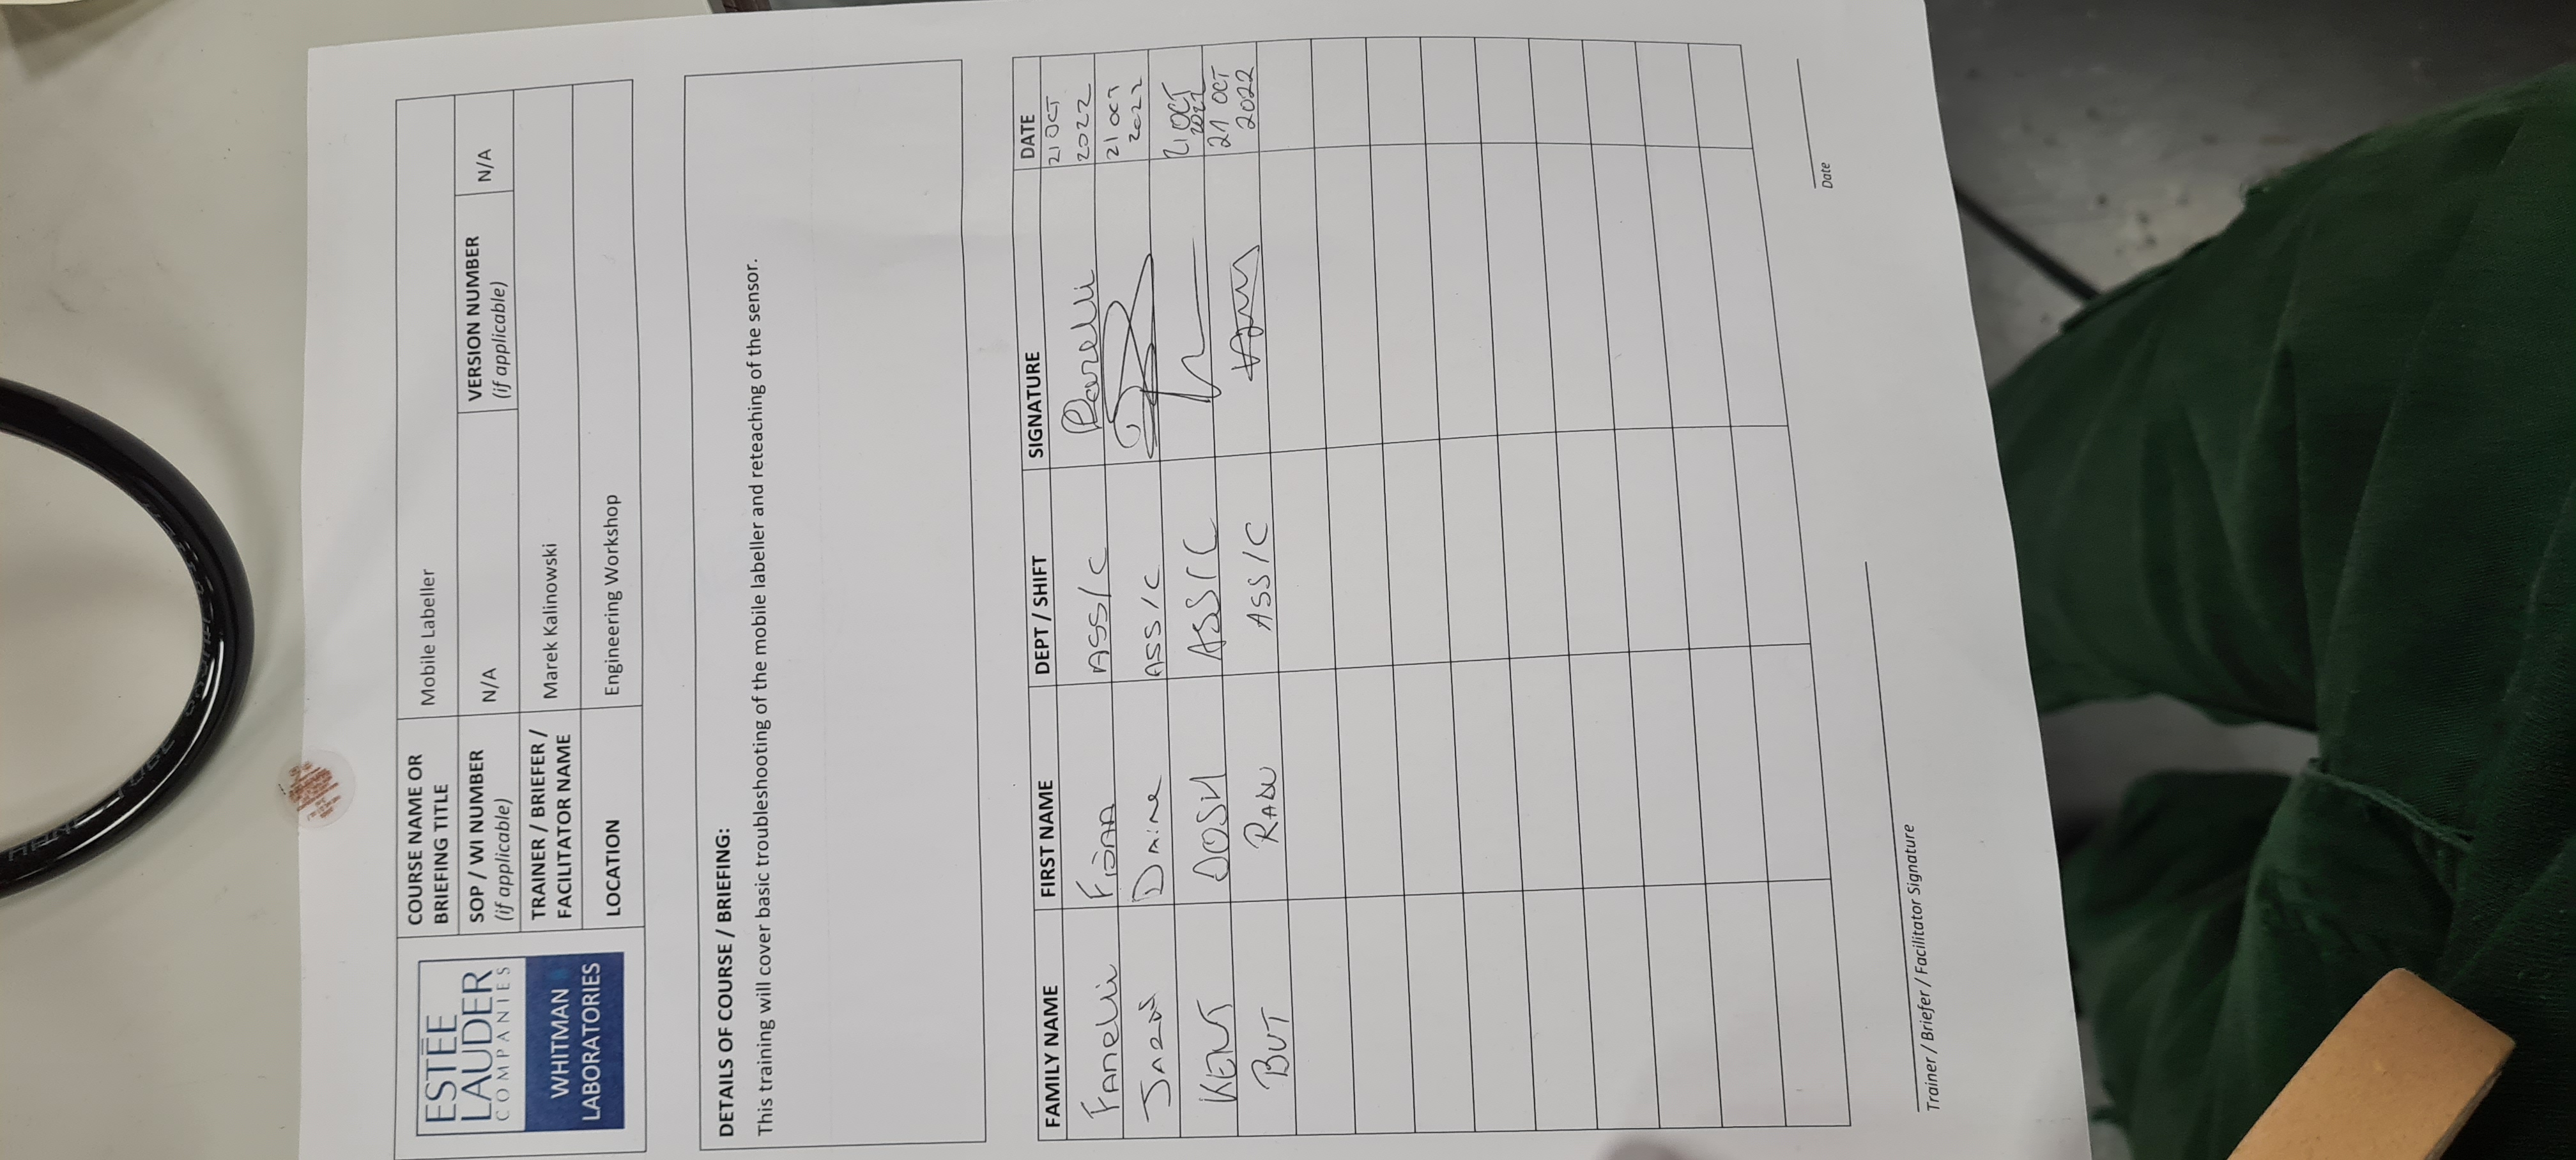 ESTĒE
LAUDER
COMPANIES
WHITMAN
LABORATORIES
COURSE NAME OR
BRIEFING TITLE
Mobile Labeller
SOP / WI NUMBER
(if applicable)
N/A
VERSION NUMBER
(if applicable)
N/A
TRAINER / BRIEFER /
FACILITATOR NAME
Marek Kalinowski
LOCATION
Engineering Workshop
DETAILS OF COURSE / BRIEFING:
This training will cover basic troubleshooting of the mobile labeller and reteaching of the sensor.
FAMILY NAME FIRST NAME DEPT / SHIFT SIGNATURE DATE
Fanelli ASS/C 21 OCT
2022
ASS/C 21 OCT
2022
KENT JOSH ASS/C 21 OCT
2022
BUT RADU ASS/C 21 OCT
2022
Trainer / Briefer / Facilitator Signature
Date